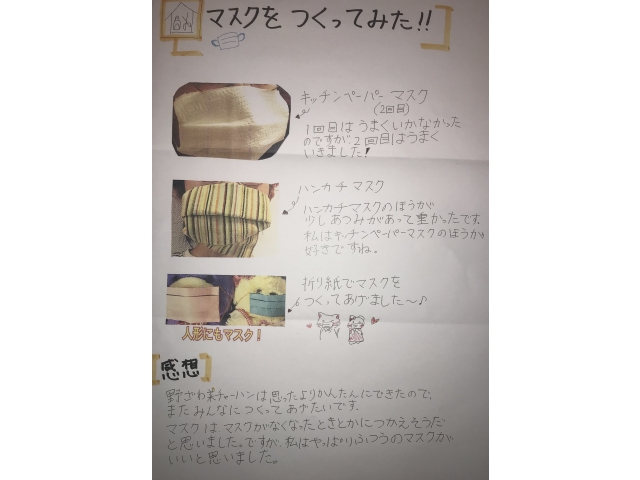 マスクを つくってみた!!
キッチンペーパー マスク
(2回目)
1回目は うまくいかなかった
のですが、2回目はうまく
いきました!
ハンカチ マスク
ハンカチマスクのほうが
少しあつみがあって重かったです。
私はキッチンペーパーマスクのほうが
好きですね。
折り紙でマスクを
つくってあげました〜♪
人形にもマスク!
感想
野ざわ菜チャーハンは思ったよりかんたんにできたので、
またみんなにつくってあげたいです。
マスクは、マスクがなくなったときとかにつかえそうだ
と思いました。ですが、私はやっぱりふつうのマスクが
いいと思いました。